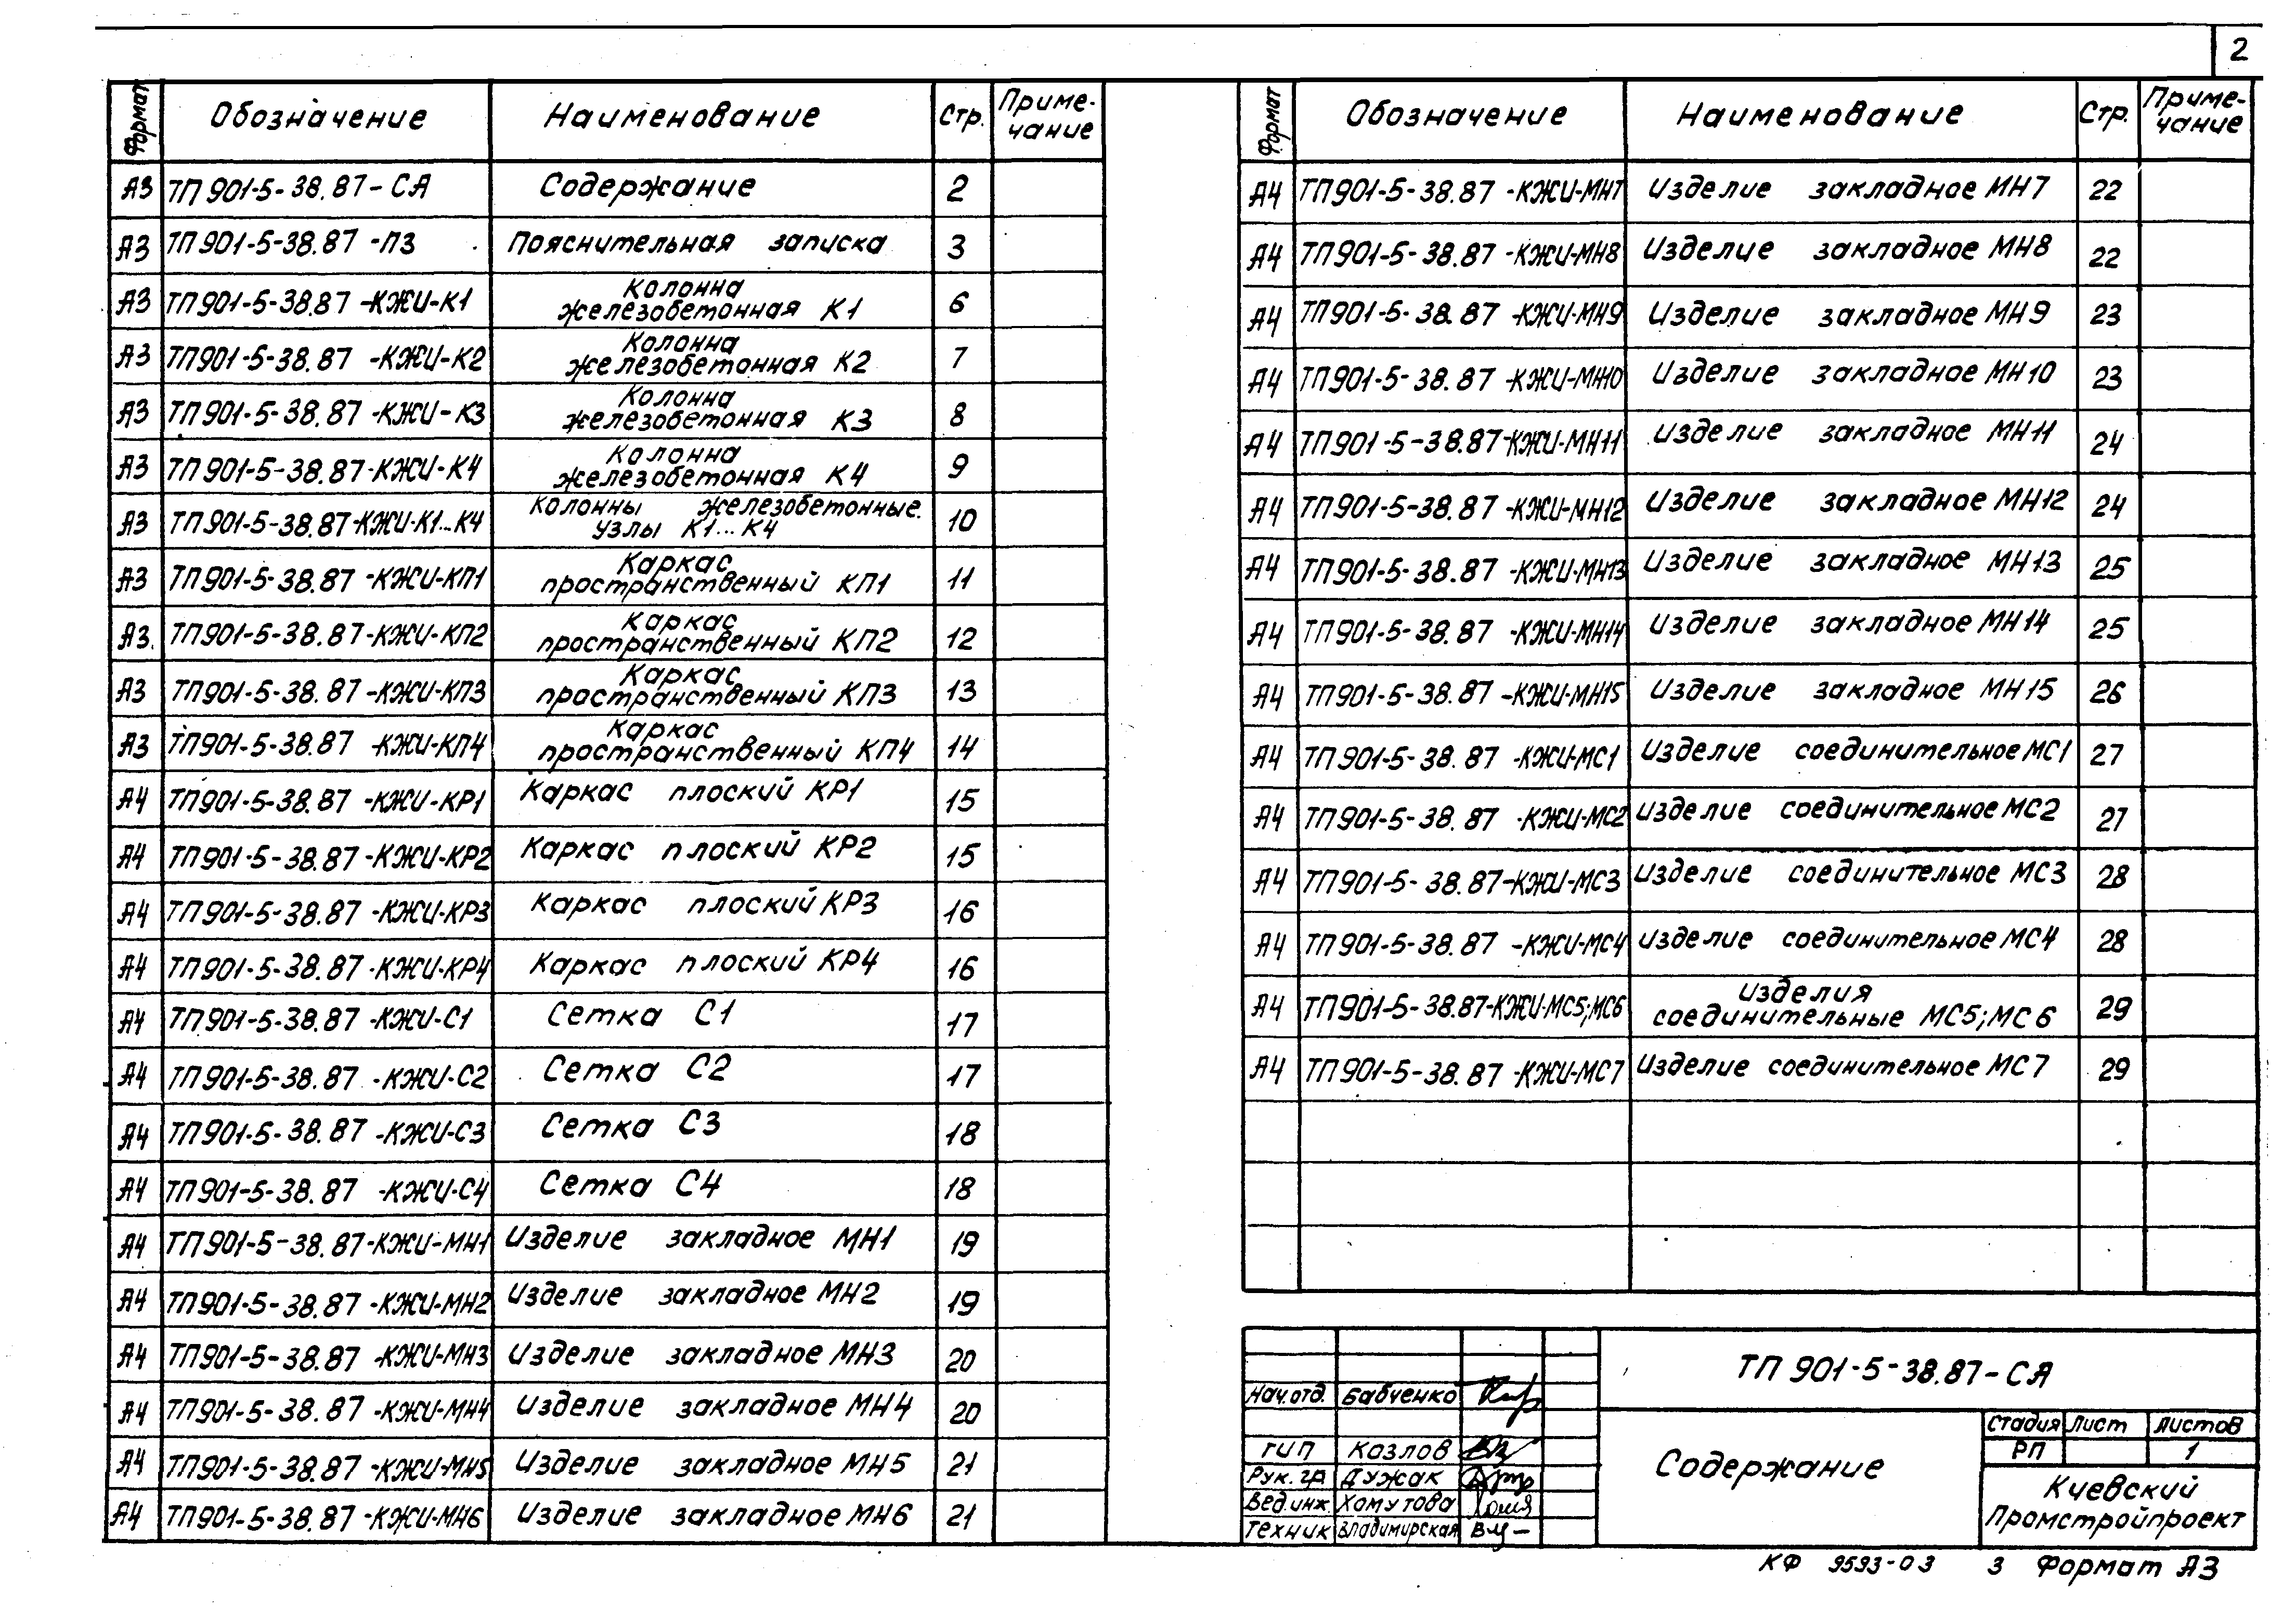 2
Формат Обозначение Наименование Стр. Приме-
чание
А3 ТП 901-5-38.87-СА Содержание 2
А3 ТП 901-5-38.87-ПЗ Пояснительная записка 3
А3 ТП 901-5-38.87-КЖИ-К1 Колонна
железобетонная К1 6
А3 ТП 901-5-38.87-КЖИ-К2 Колонна
железобетонная К2 7
А3 ТП 901-5-38.87-КЖИ-К3 Колонна
железобетонная К3 8
А3 ТП 901-5-38.87-КЖИ-К4 Колонна
железобетонная К4 9
А3 ТП 901-5-38.87-КЖИ-К1...К4 Колонны железобетонные.
узлы К1...К4 10
А3 ТП 901-5-38.87-КЖИ-КП1 Каркас
пространственный КП1 11
А3 ТП 901-5-38.87-КЖИ-КП2 Каркас
пространственный КП2 12
А3 ТП 901-5-38.87-КЖИ-КП3 Каркас
пространственный КП3 13
А3 ТП 901-5-38.87-КЖИ-КП4 Каркас
пространственный КП4 14
А4 ТП 901-5-38.87-КЖИ-КР1 Каркас плоский КР1 15
А4 ТП 901-5-38.87-КЖИ-КР2 Каркас плоский КР2 15
А4 ТП 901-5-38.87-КЖИ-КР3 Каркас плоский КР3 16
А4 ТП 901-5-38.87-КЖИ-КР4 Каркас плоский КР4 16
А4 ТП 901-5-38.87-КЖИ-С1 Сетка С1 17
А4 ТП 901-5-38.87-КЖИ-С2 Сетка С2 17
А4 ТП 901-5-38.87-КЖИ-С3 Сетка С3 18
А4 ТП 901-5-38.87-КЖИ-С4 Сетка С4 18
А4 ТП 901-5-38.87-КЖИ-МН1 Изделие закладное МН1 19
А4 ТП 901-5-38.87-КЖИ-МН2 Изделие закладное МН2 19
А4 ТП 901-5-38.87-КЖИ-МН3 Изделие закладное МН3 20
А4 ТП 901-5-38.87-КЖИ-МН4 Изделие закладное МН4 20
А4 ТП 901-5-38.87-КЖИ-МН5 Изделие закладное МН5 21
А4 ТП 901-5-38.87-КЖИ-МН6 Изделие закладное МН6 21
Формат Обозначение Наименование Стр. Приме-
чание
А4 ТП 901-5-38.87-КЖИ-МН7 Изделие закладное МН7 22
А4 ТП 901-5-38.87-КЖИ-МН8 Изделие закладное МН8 22
А4 ТП 901-5-38.87-КЖИ-МН9 Изделие закладное МН9 23
А4 ТП 901-5-38.87-КЖИ-МН10 Изделие закладное МН10 23
А4 ТП 901-5-38.87-КЖИ-МН11 Изделие закладное МН11 24
А4 ТП 901-5-38.87-КЖИ-МН12 Изделие закладное МН12 24
А4 ТП 901-5-38.87-КЖИ-МН13 Изделие закладное МН13 25
А4 ТП 901-5-38.87-КЖИ-МН14 Изделие закладное МН14 25
А4 ТП 901-5-38.87-КЖИ-МН15 Изделие закладное МН15 26
А4 ТП 901-5-38.87-КЖИ-МС1 Изделие соединительное МС1 27
А4 ТП 901-5-38.87-КЖИ-МС2 Изделие соединительное МС2 27
А4 ТП 901-5-38.87-КЖИ-МС3 Изделие соединительное МС3 28
А4 ТП 901-5-38.87-КЖИ-МС4 Изделие соединительное МС4 28
А4 ТП 901-5-38.87-КЖИ-МС5;МС6 Изделия
соединительные МС5;МС6 29
А4 ТП 901-5-38.87-КЖИ-МС7 Изделие соединительное МС7 29
ТП 901-5-38.87-СА
Нач.отд. Бабченко
ГИП Козлов
Рук. гр Дужак
Вед.инж Хомутова
Техник Владимирская
Содержание
Стадия Лист Листов
РП 1
Киевский
Промстройпроект
КФ 9593-03 3 Формат А3